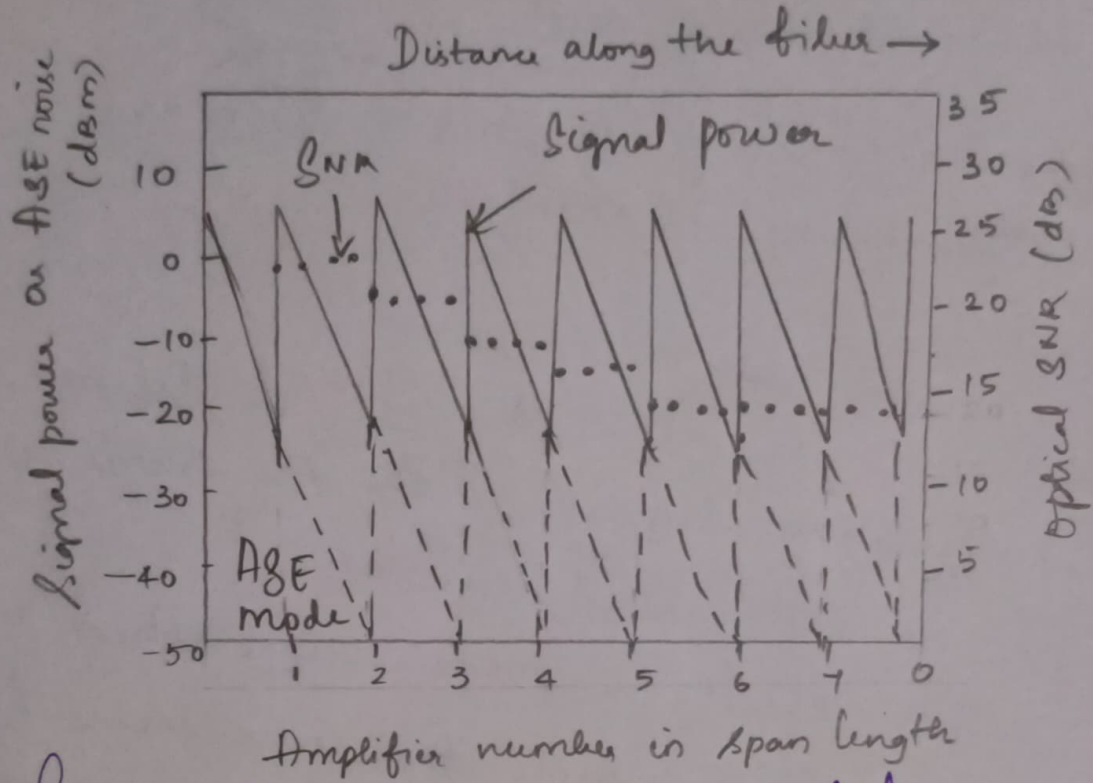 Distance along the fiber →
Signal power or ASE noise
(dBm)
10
0
-10
-20
-30
-40
-50
SNR
Signal power
ASE
mode
35
30
25
20
15
10
5
Optical SNR (dB)
1 2 3 4 5 6 7 0
Amplifier number in span length